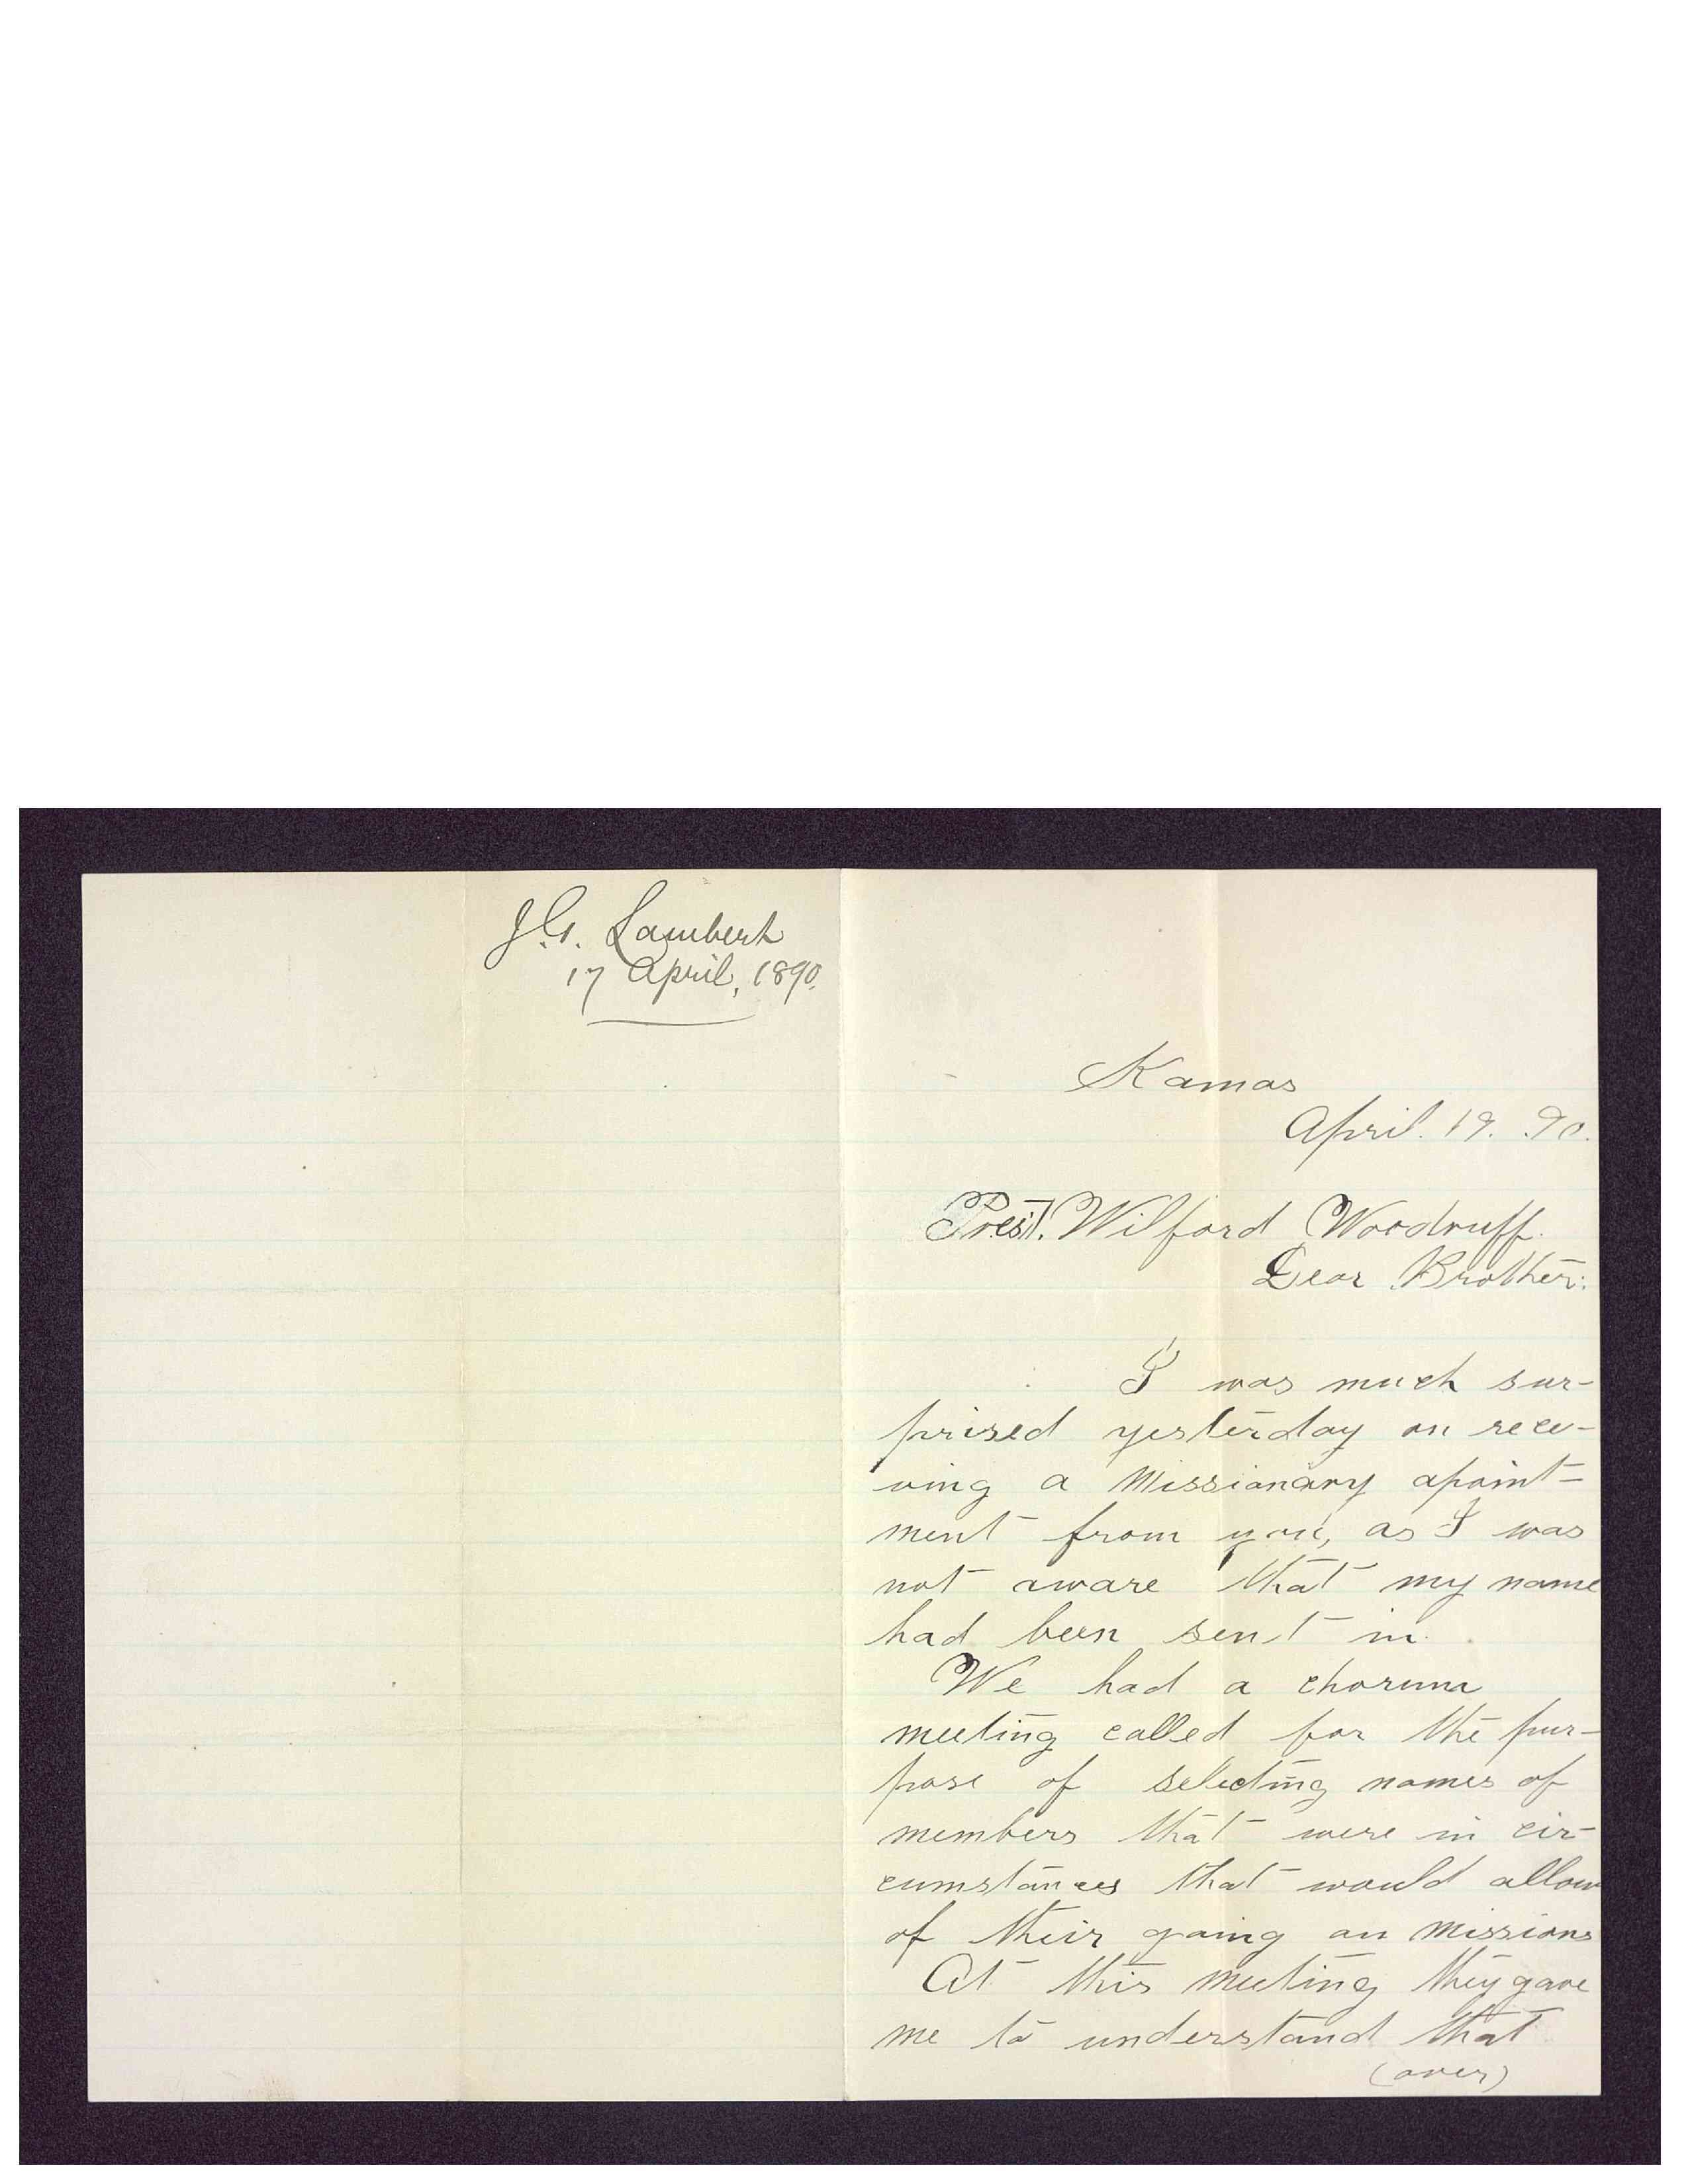 J.G. Lambert
17 April, 1890.
Kamas
April. 19. 90.
Prest. Wilford Woodruff.
Dear Brother:
I was much sur-
prised yesterday on rece-
ving a Missionary apoint-
ment from you, as I was
not aware that my name
had been sent in.
We had a chorum
meeting called for the pur-
pose of selecting names of
members that were in cir-
cumstances that would allow
of their going on missions
At this meeting they gave
me to understand that
(over)